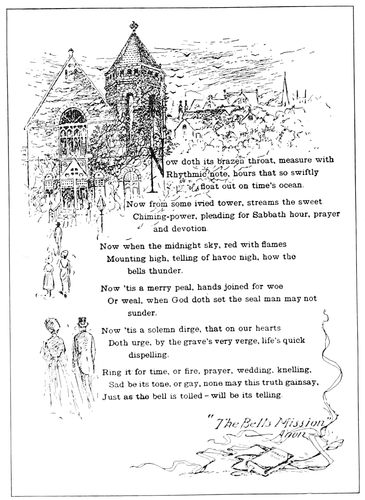 Now doth its brazen throat, measure with
Rhythmic note, hours that so swiftly
float out on time's ocean.
Now from some ivied tower, streams the sweet
Chiming-power, pleading for Sabbath hour, prayer
and devotion
Now when the midnight sky, red with flames
Mounting high, telling of havoc nigh, how the
bells thunder.
Now 'tis a merry peal, hands joined for woe
Or weal, when God doth set the seal man may not
sunder.
Now 'tis a solemn dirge, that on our hearts
Doth urge, by the grave's very verge, life's quick
dispelling.
Ring it for time, or fire, prayer, wedding, knelling,
Sad be its tone, or gay, none may this truth gainsay,
Just as the bell is tolled – will be its telling.
"The Bells Mission"
Anon